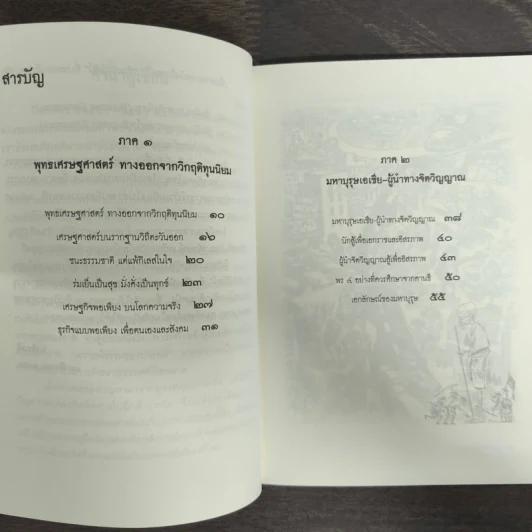 สารบัญ
ภาค ๑
พุทธเศรษฐศาสตร์ ทางออกจากวิกฤติทุนนิยม
พุทธเศรษฐศาสตร์ ทางออกจากวิกฤติทุนนิยม ๑๐
เศรษฐศาสตร์บนรากฐานวิถีตะวันออก ๑๖
ชนะธรรมชาติ แต่แพ้กิเลสในใจ ๒๐
ร่มเย็นเป็นสุข มั่งคั่งเป็นทุกข์ ๒๓
เศรษฐกิจพอเพียง บนโลกความจริง ๒๗
ธุรกิจแบบพอเพียง เพื่อตนเองและสังคม ๓๑
ภาค ๒
มหาบุรุษเอเชีย-ผู้นำทางจิตวิญญาณ
มหาบุรุษเอเชีย-ผู้นำทางจิตวิญญาณ ๓๗
นักสู้เพื่อเอกราชและอิสรภาพ ๔๐
ผู้นำจิตวิญญาณสู้เพื่ออิสรภาพ ๔๓
พร ๔ อย่างที่ควรศึกษาจากคานธี ๕๐
เอกลักษณ์ของมหาบุรุษ ๕๕